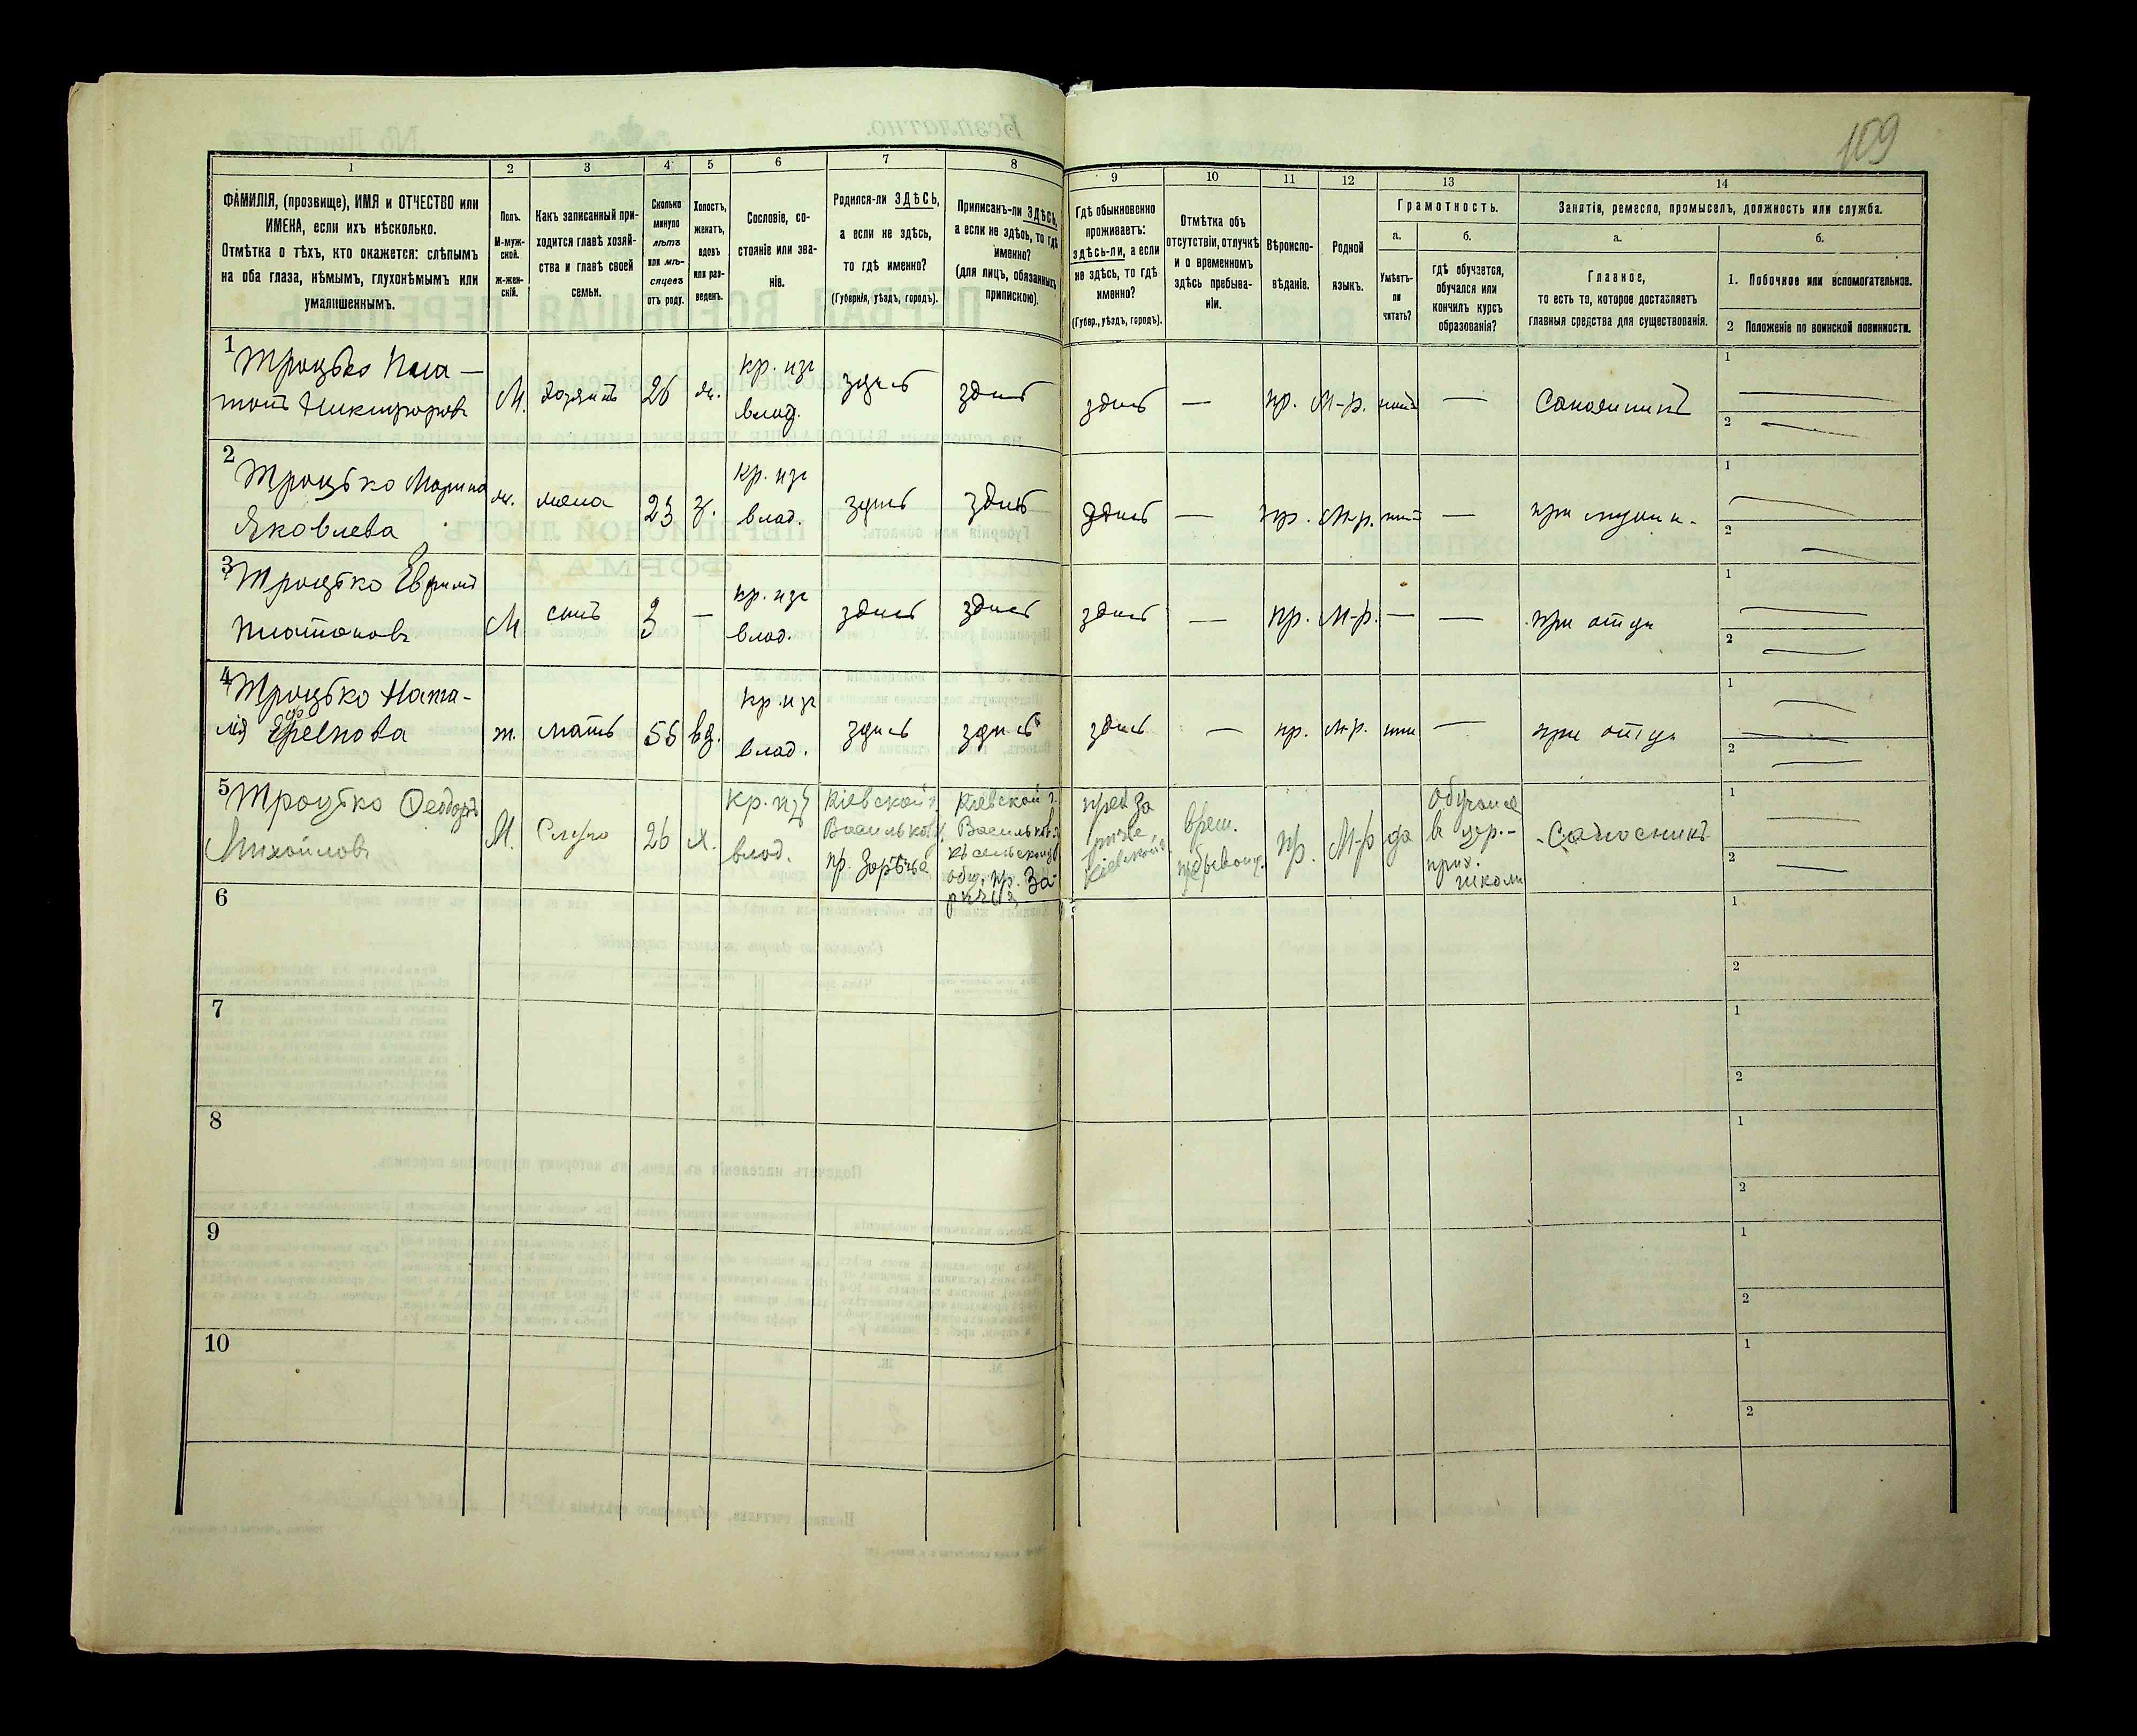 109
1
2
3
4
5
6
7
8
9
10
11
12
13
14
ФАМИЛІЯ, (прозвище), ИМЯ и ОТЧЕСТВО или
ИМЕНА, если ихъ нѣсколько.
Отмѣтка о тѣхъ, кто окажется: слѣпымъ
на оба глаза, нѣмымъ, глухонѣмымъ или
умалишеннымъ.
Полъ.
М-муж-
ской.
Ж-жен-
скій.
Какъ записанный при-
ходится главѣ хозяй-
ства и главѣ своей
семьи.
Сколько
минуло
лѣтъ
или мѣ-
сяцевъ
отъ роду.
Холостъ,
женатъ,
вдовъ
или раз-
веденъ.
Сословіе, со-
стояніе или зва-
ніе.
Родился-ли ЗДѢСЬ,
а если не здѣсь,
то гдѣ именно?
(Губернія, уѣздъ, городъ).
Приписанъ-ли ЗДѢСЬ,
а если не здѣсь, то гдѣ
именно?
(для лицъ, обязанныхъ
припискою).
Гдѣ обыкновенно
проживаетъ:
здѣсь-ли, а если
не здѣсь, то гдѣ
именно?
(Губер., уѣздъ, городъ).
Отмѣтка объ
отсутствіи, отлучкѣ
и о временномъ
здѣсь пребыва-
ніи.
Вѣроиспо-
вѣданіе.
Родной
языкъ.
Грамотность.
а.
Умѣетъ-
ли
читать?
б.
гдѣ обучается,
обучался или
кончилъ курсъ
образованія?
Занятія, ремесло, промыселъ, должность или служба.
а.
Главное,
то есть то, которое доставляетъ
главныя средства для существованія.
б.
1. Побочное или вспомогательное.
2 Положеніе по воинской повинности.
1
Троцько Пла-
тонъ Никифоровъ
М.
хозяинъ
26
ж.
кр. изъ
влад.
здѣсь
здѣсь
здѣсь
—
пр.
М-р.
—
1
2
2
Троцько Марина
Яковлева
ж.
жена
23
з.
кр. изъ
влад.
здѣсь
здѣсь
здѣсь
—
пр.
М-р.
—
при мужи
1
2
3
Троцько Ефимъ
Платоновъ
М
сынъ
3
—
кр. изъ
влад.
здѣсь
здѣсь
здѣсь
—
пр.
М-р.
—
—
при отци
1
2
4
Троцько Ната-
лія
ж.
мать
56
вд.
кр. изъ
влад.
здѣсь
здѣсь
здѣсь
—
пр.
М-р.
—
при отци
1
2
5
Троцько Феодоръ
Михойловъ
М.
26
х.
кр. изъ
влад.
Кіевской г.
Васильков.
пр. Зарѣчье
Кіевской г.
Васильков.
къ сельскому
общ. пр. За-
рѣчья
Кіевской
врем.
пр.
М-р
да
обучался
в цер.-
прих.
школи
1
2
6
1
2
7
1
2
8
1
2
9
1
2
10
1
2